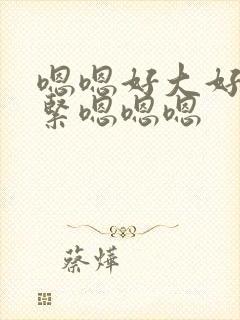 嗯嗯好大好
紧嗯嗯嗯
蔡烨